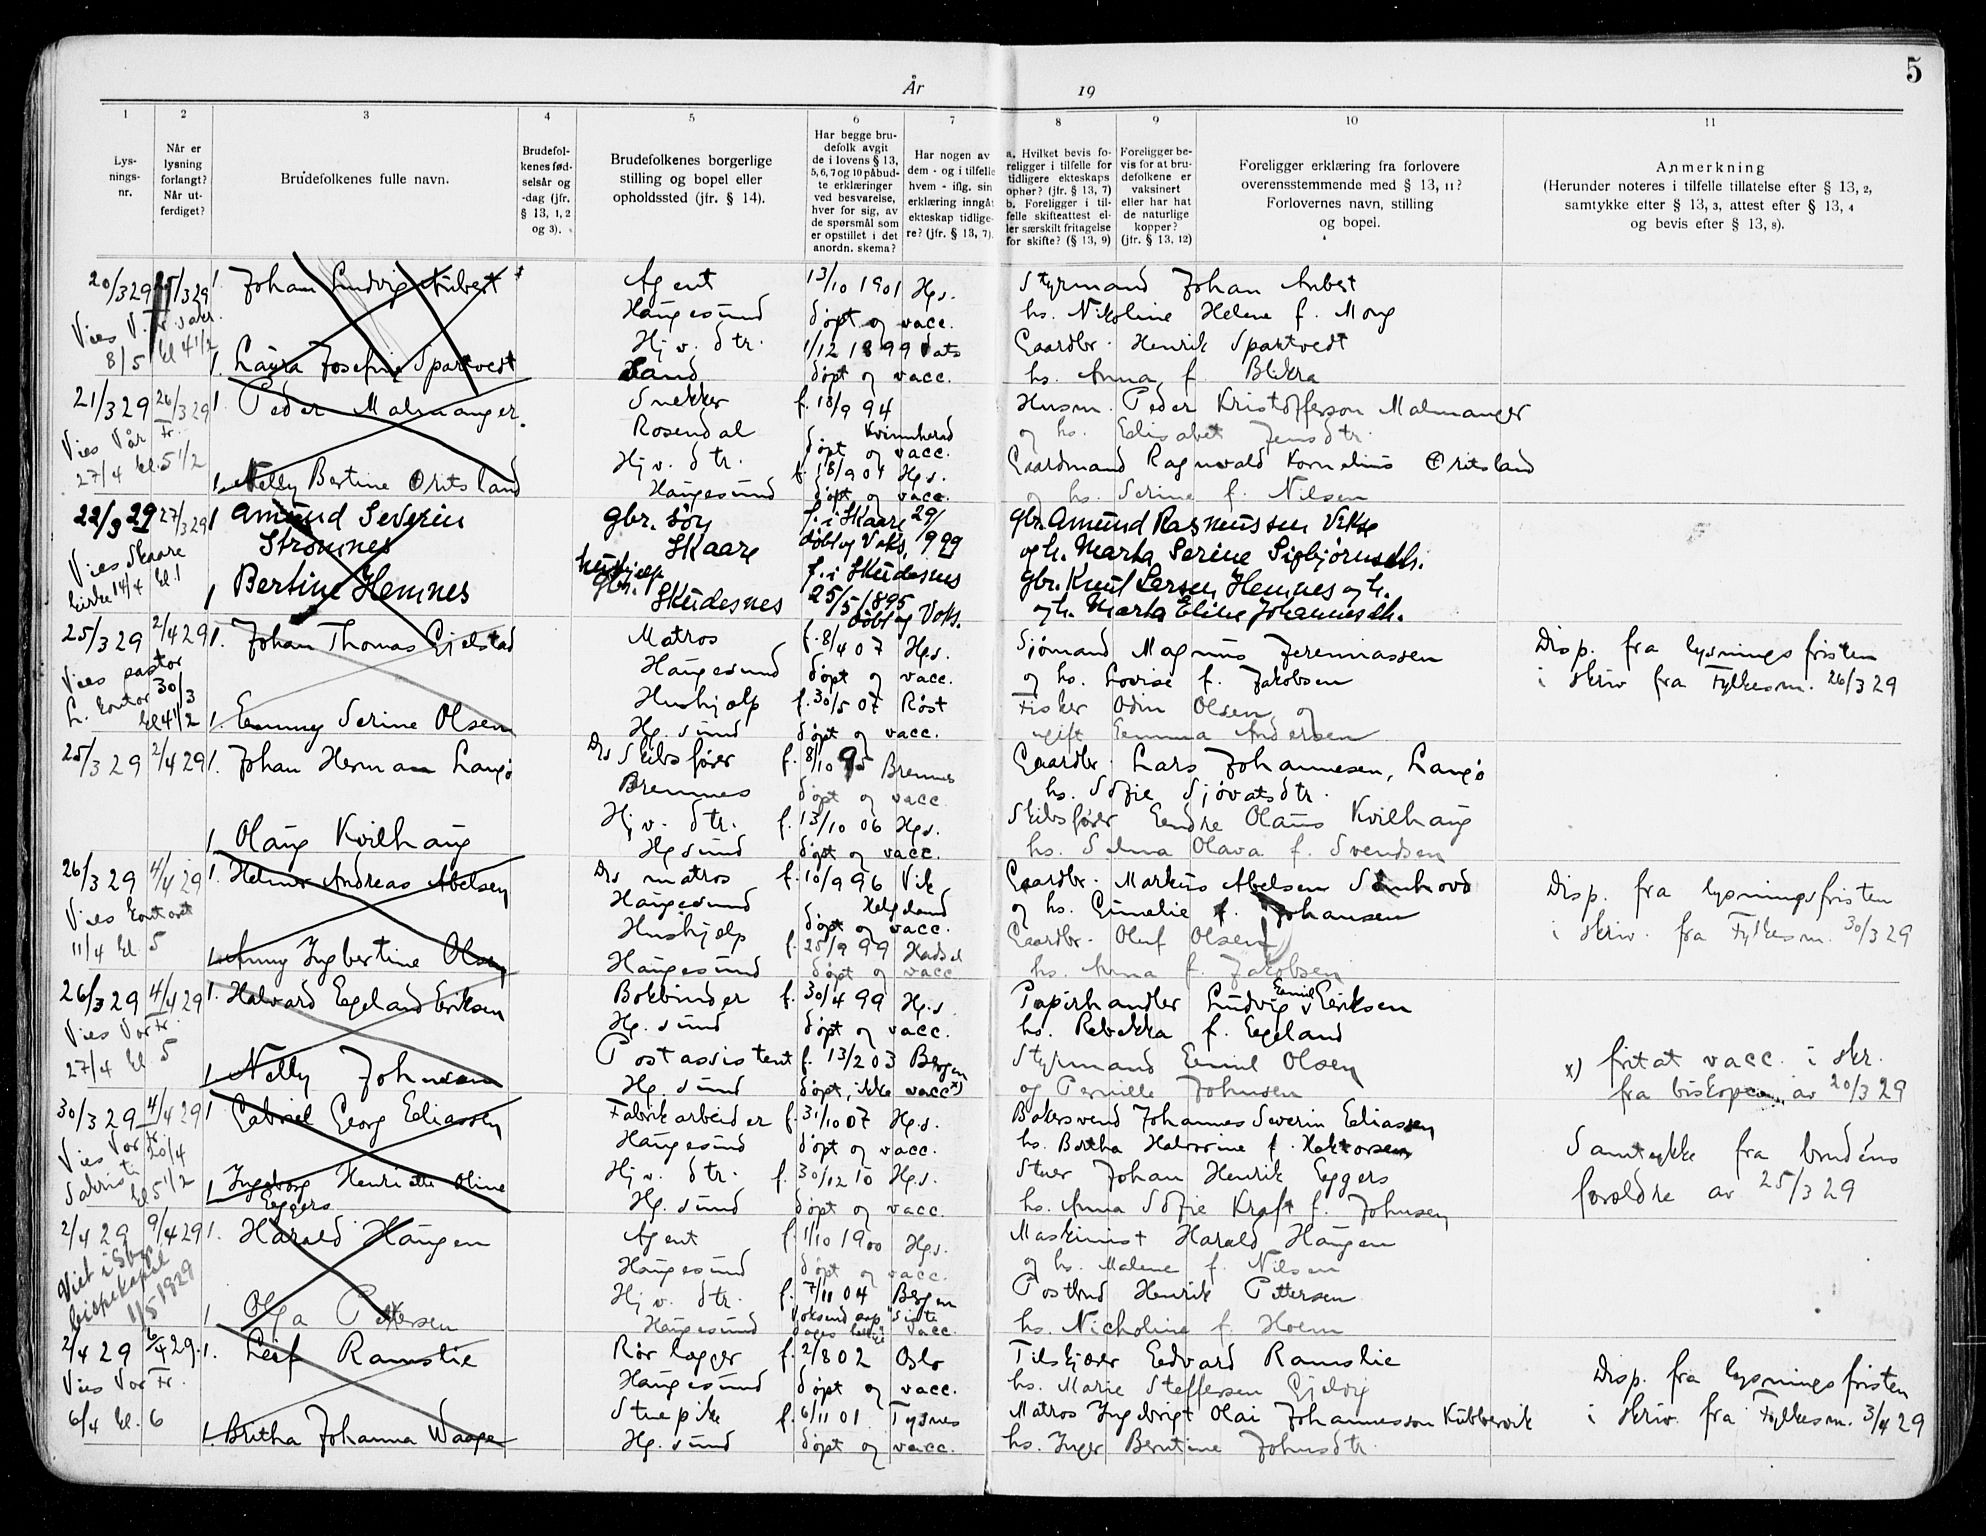 5
År 19
1 2 3 4 5 6 7 8 9 10 11
Lys-
nings-
nr.
Når er
lysning
forlangt?
Når ut-
ferdiget?
Brudefolkenes fulle navn.
Brudefol-
kenes fød-
selsår og
-dag (jfr.
§ 13, 1, 2
og 3).
Brudefolkenes borgerlige
stilling og bopel eller
opholdssted (jfr. § 14).
Har begge bru-
defolk avgit
de i lovens § 13,
5, 6, 7 og 10 påbud-
te erklæringer
ved besvarelse,
hver for sig, av
de spørsmål som
er opstillet i det
anordn. skema?
Har nogen av
dem - og i tilfelle
hvem - iflg. sin
erklæring inngåt
ekteskap tidlige-
re? (jfr. § 13, 7).
a. Hvilket bevis fo-
religger i tilfelle for
tidligere ekteskaps
ophør? (jfr. § 13, 7)
b. Foreligger i til-
felle skifteattest el-
ler særskilt fritagelse
for skifte? (§ 13, 9)
Foreligger be-
vis for at bru-
defolkene er
vaksinert
eller har hat
de naturlige
kopper?
(jfr. § 13, 12)
Foreligger erklæring fra forlovere
overensstemmende med § 13, 11?
Forlovernes navn, stilling
og bopel.
Anmerkning
(Herunder noteres i tilfelle tillatelse efter § 13, 2,
samtykke efter § 13, 3, attest efter § 13, 4
og bevis efter § 13, 8).
20/3 29 25/3 29 1. Johan Ludvig Aubert Agent 13/10 1901 Hgs. Styrmand Johan Aubert
Haugesund døpt og vacc. hs. Nikoline Helene f. Mong
Vies V. Fr. sakr. Hj v. dtr. 1/12 1899 Vats Gaardbr. Henrik Spartvedt
8/5 kl 4 1/2 1. Laura Josefine Spartvedt Sand døpt og vacc. hs. Anna f. Blikra
21/3 29 26/3 29 1. Peder Malmanger. Snekker f. 18/9 94 Husm. Peder Kristofferson Malmanger
Vies Vår Fr. Rosendal Kvinnherad døpt og vacc. og hs. Elisabet Jensdtr.
27/4 kl. 5 1/2 Hj v. dtr. f. 18/9 01 Hgs. Gaardmand Ragnvald Kornelius Oritsland
1. Nelly Bertine Oritsland Haugesund døpt og vacc. og hs. Serine f. Nilsen
22/3 29 27/3 29 1 Amund Severin gbr. søn f. i Skaare 29/ gbr. Amund Rasmussen Vikse
Vies Skaare Strømnes Skaare døbt og Vaks. 9 99 og h. Marta Serine Sigbjørnsdtr.
kirke 14/4 kl. 1 1 Bertine Hemnes hushjelp gbr. f. i Skudesnes gbr. Knut Larsen Hemnes og h.
Skudesnes 25/5 1895 døbt og Vaks. og h. Marta Eline Johannesdtr.
25/3 29 2/4 29 1. Johan Thomas Gjelstad Matros f. 8/4 07 Hgs. Sjømand Magnus Jeremiassen Disp. fra lysningsfristen
Vies pastor Haugesund døpt og vacc. og hs. Lovise f. Jakobsen i skriv fra Fylkesm. 26/3 29
L. kontor 30/3 Hushjelp f. 30/5 07 Røst Fisker Odin Olsen og
kl 4 1/2 1. Emmy Serine Olsen Hg.sund døpt og vacc. ugift Emma Andersen
25/3 29 2/4 29 1. Johan Herman Langø Ds Skibsfører f. 8/10 95 Bremnes Gaardbr. Lars Johannesen, Langø
Bremnes døpt og vacc. hs. Sofie Sjovatsdtr.
Hj v. dtr. f. 13/10 06 Hgs. Skibsfører Endre Olaus Kvilhaug
1. Olaug Kvilhaug Hgsund døpt og vacc. hs. Selma Olava f. Svendsen
26/3 29 4/4 29 1. Helmer Andreas Abelsen Ds matros f. 10/9 96 Vik Gaardbr. Markus Abelsen Disp. fra lysningsfristen
Vies kontoret Haugesund Helgeland døpt og vacc. og hs. Emelie f. Johansen i skriv. fra Fylkesm. 30/3 29
11/4 kl 5 Hushjelp f. 25/9 99 Hadsel Gaardbr. Oluf Olsen
1. Anny Ingbertine Olsen Haugesund døpt og vacc hs. Anna f. Jakobsen
26/3 29 4/4 29 1. Halvard Egeland Eriksen Bokbinder f. 30/4 99 Hgs. Papirhandler Ludvig Emil Eriksen
Vies Vor Fr. Hg.sund døpt og vacc. hs. Rebekka f. Egeland
27/4 kl 5 Postassistent f. 13/2 03 Bergen Styrmand Emil Olsen x) fritat vacc. i skr.
1. Nelly Johnsen Hg.sund døpt, ikke vacc x) og Pernille Johnsen fra biskopen av 20/3 29
30/3 29 4/4 29 1 Gabriel Georg Eliassen Fabrikarbeider f. 31/10 07 Hgs. Bakersvend Johannes Severin Eliassen
Vies Vor Fr. 20/4 Haugesund døpt og vacc. hs. Bertha Halvorine f. Haktorsen Samtykke fra brudens
Sakristi kl 5 1/2 1 Ingeborg Henriette Oline Hj v. dtr. f. 30/12 10 Hgs. Stuer Johan Henrik Eggers forældre av 25/3 29
Eggers Hg.sund døpt og vacc. hs. Anna Sofie Kraft f. Johnsen
2/4 29 9/4 29 1. Harald Haugen Agent f. 1/10 1900 Hgs. Maskinist Harald Haugen
Viet i Haugesund døpt og vacc. og hs. Malene f. Nilsen
bispekapel Hj v. dtr. f. 7/11 04 Bergen Postbud Henrik Pettersen
1/5 1929 1 Olga Pettersen Haugesund vacc. hs. Nicholine f. Hoem
2/4 29 6/4 29. 1. Leif Ramslie Rørlægger f. 2/8 02 Oslo Tilskjærer Edvard Ramslie Disp. fra lysningsfristen
Vies Vor Fr. Haugesund døpt og vacc. hs. Marie Steffensen Gjelvig i skriv. fra Fylkesm. 3/4 29
6/4 kl. 6 Stuepike f. 6/11 01. Tysnes Matros Ingebrigt Olai Johannesson Kubbervik
1. Britha Johanna Waage Hg.sund døpt og vacc. hs. Inger Berntine Johnsdtr.